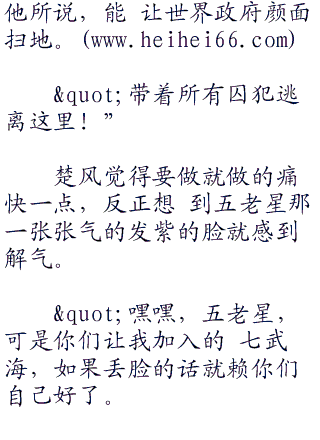 他所说，能 让世界政府颜面
扫地。(www.heihei66.com)
&quot;带着所有囚犯逃
离这里！”
楚风觉得要做就做的痛
快一点，反正想 到五老星那
一张张气的发紫的脸就感到
解气。
&quot;嘿嘿，五老星，
可是你们让我加入的 七武
海，如果丢脸的话就赖你们
自己好了。